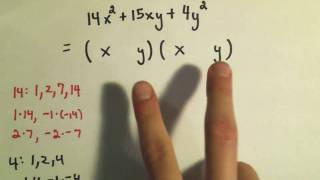 14x²+15xy+4y²
= (x y)(x y)
14: 1,2,7,14
1·14, -1·(-14)
2·7, -2·-7
4: 1,2,4